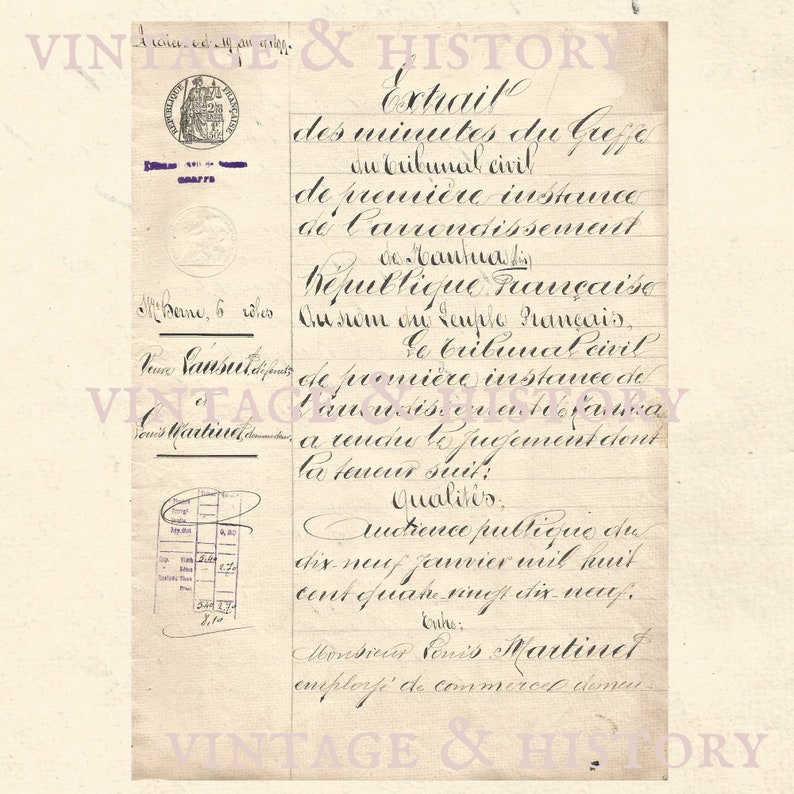 VINTAGE & HISTORY
RÉPUBLIQUE FRANÇAISE
2/10
EN SUS
50c
GREFFE
Me Berne, 6 rôles
Veuve
et
Louis Martinet, demandeur.
Timbre
Enregt
Rép. Stat
0,80
Exp.
5.40
2.70
5.40 2.70
8,10
Extrait
des minutes du Greffe
du Tribunal civil
de première instance
de l'arrondissement
de Nantua (Ain)
République Française
Au nom du Peuple Français,
Le Tribunal civil
de première instance de
VINTAGE & HISTORY
l'arrondissement de Nantua
a rendu le jugement dont
la teneur suit:
Qualités,
Audience publique du
dix-neuf janvier mil huit
cent quatre-vingt dix-neuf.
Entre:
Monsieur Louis Martinet
employé de commerce demeu-
VINTAGE & HISTORY